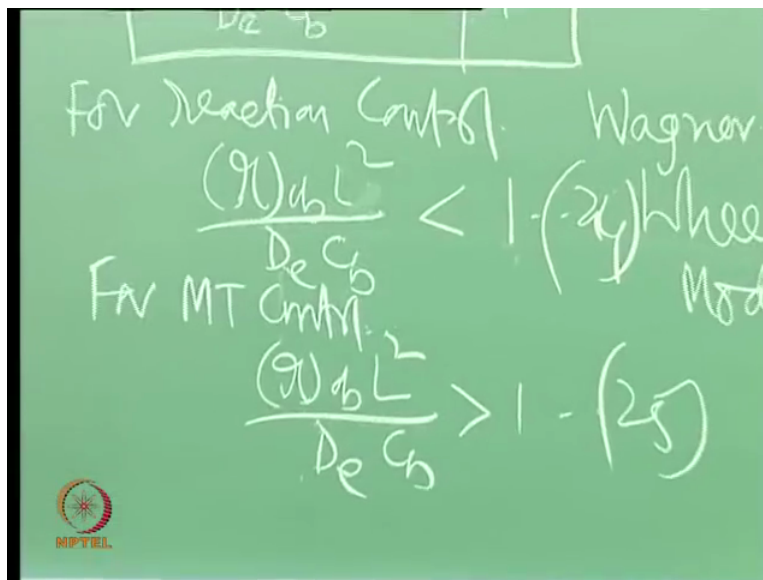 De Cb
For reaction Control. Wagner.
(r)ob L² / De Cb < 1 - (24) Whee
Mod
For MT Control.
(r)ob L² / De Cb > 1 - (25)
NPTEL